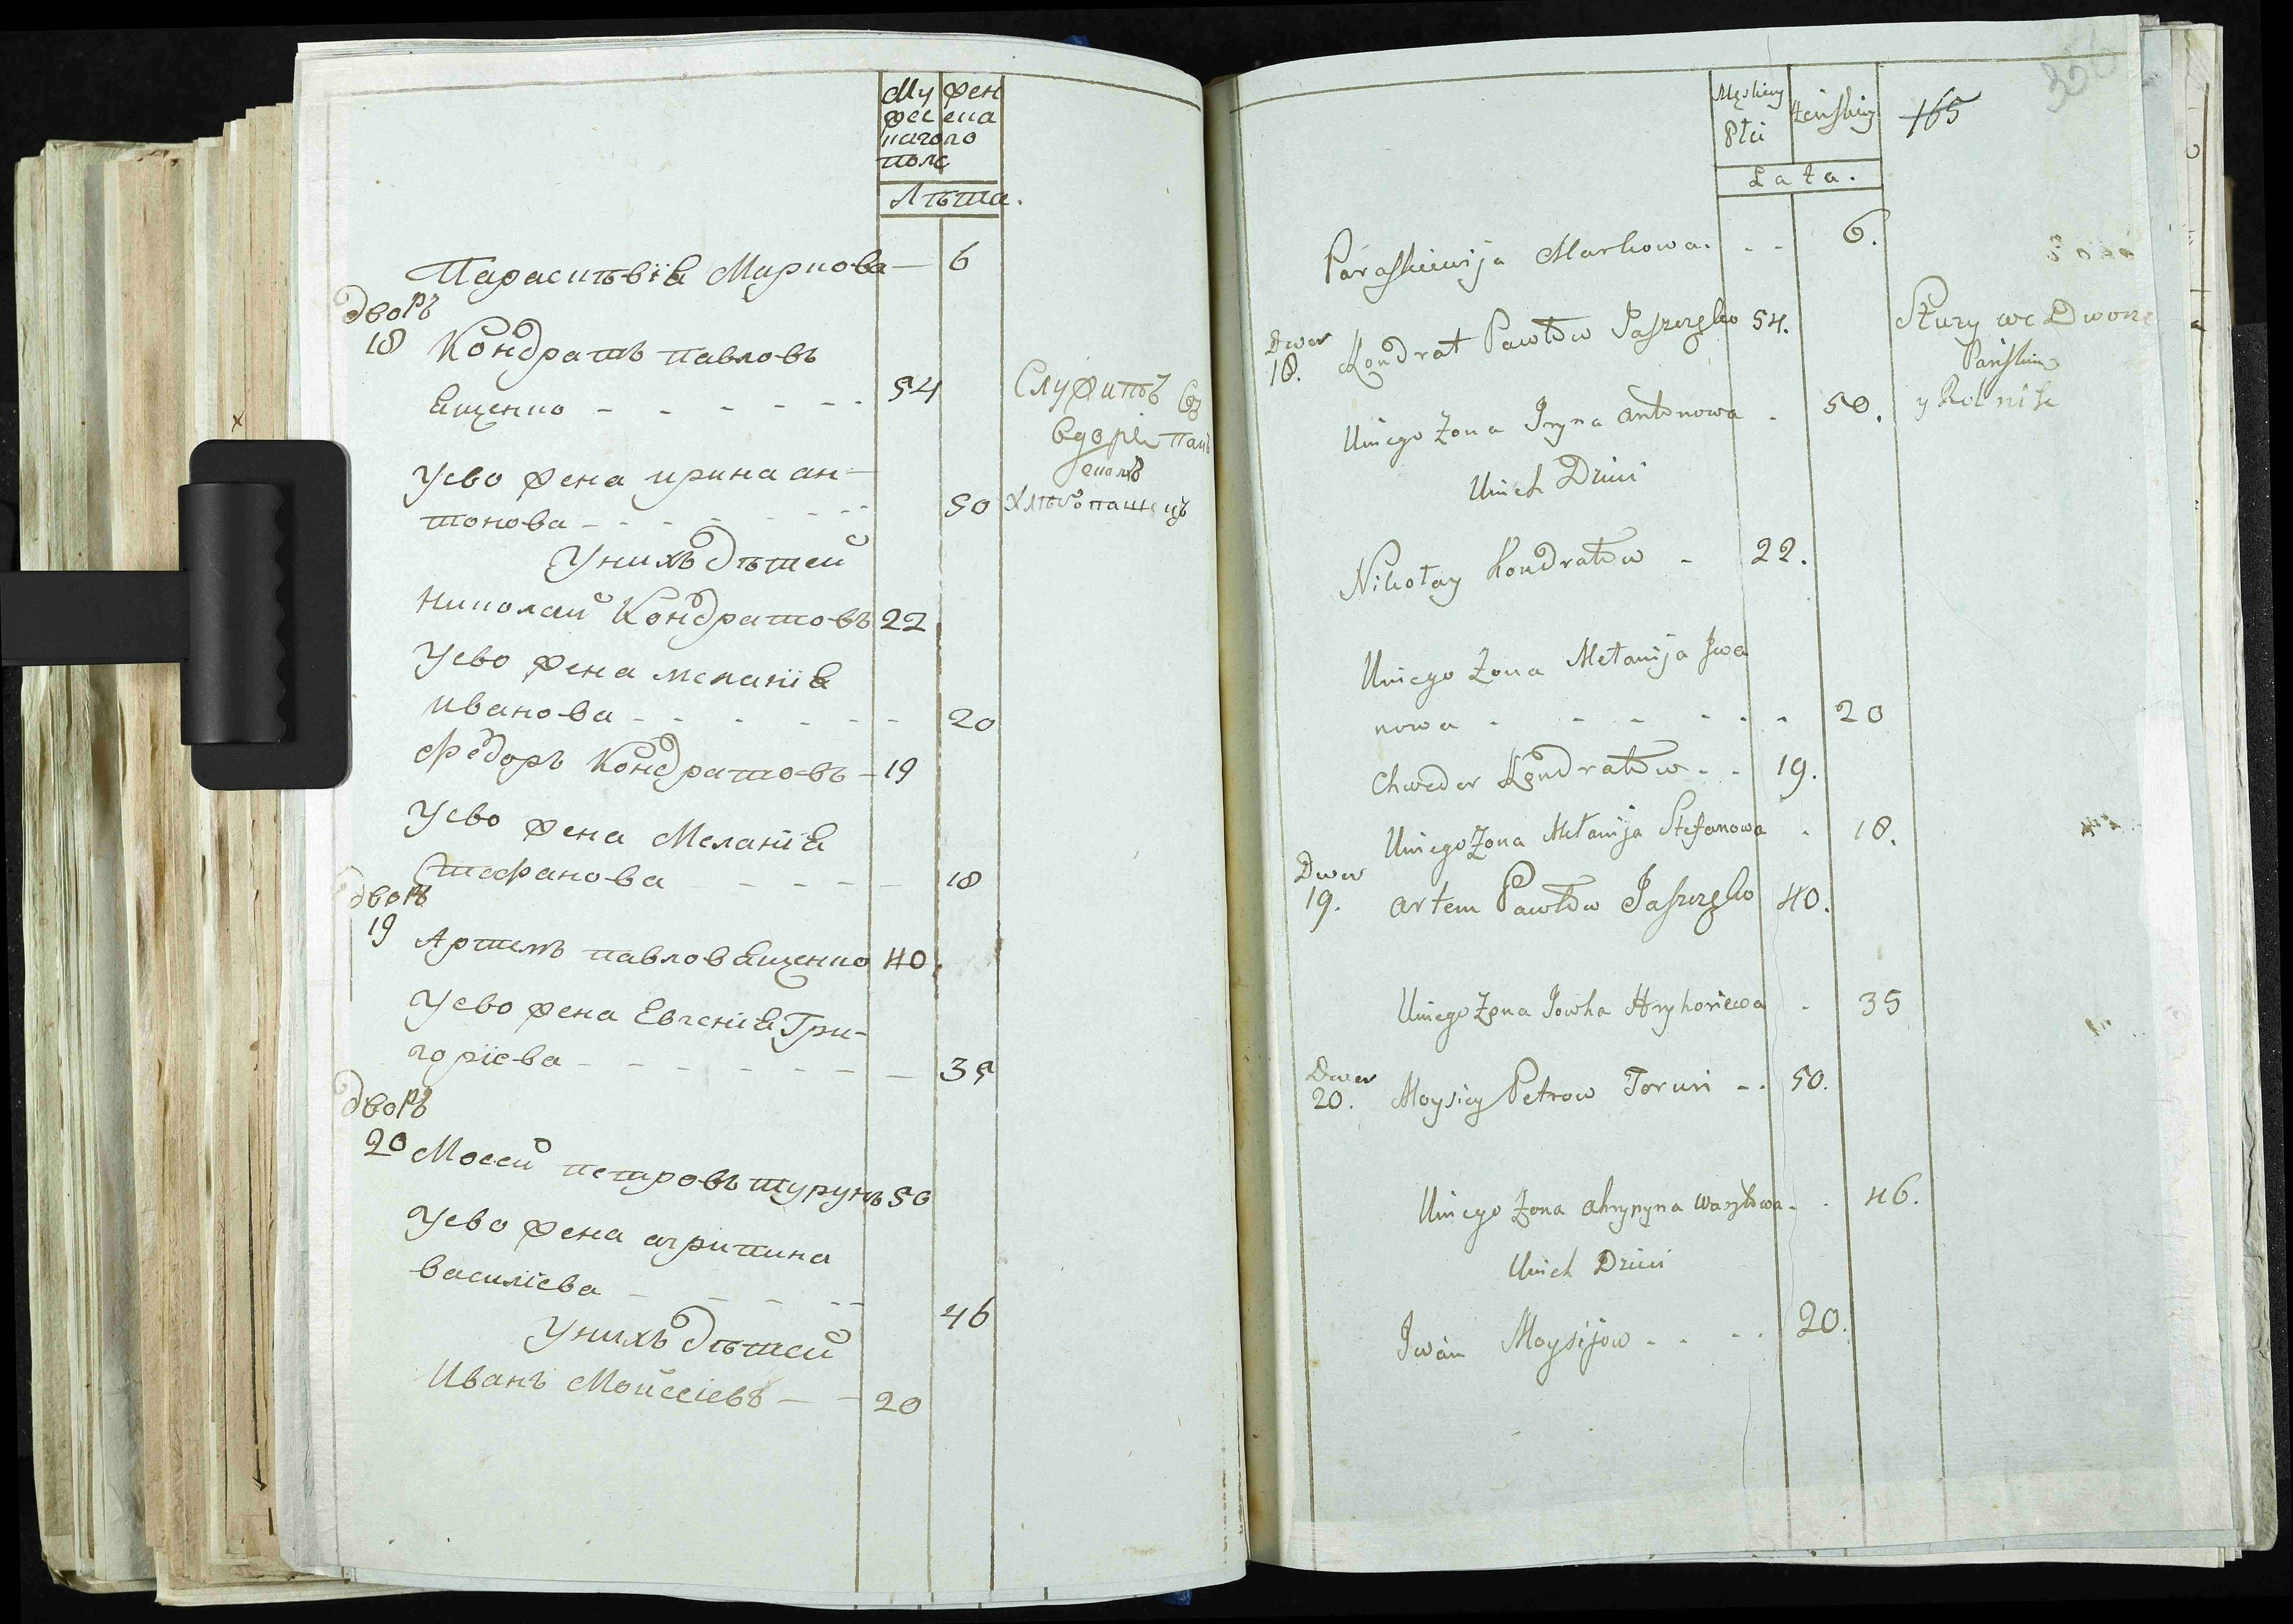 Му Жен
жес ска
каго го
пола
Лѣта.
Параскѣвія Маркова — 6
дворъ
18 Кондратъ павловъ
Ященко - - - - - - 54
Служитъ въ
дворѣ пан
скомъ
Хлѣбопашецъ
Уево жена ирина ан-
тонова - - - - - - 50
Унихъ дѣтей
Николай Кондратовъ 22
Уево жена меланія
иванова - - - - - - 20
Федоръ Кондратовъ - 19
Уево жена Меланія
Стефанова - - - - - 18
дворъ
19 Артемъ павлов Ященко 40
Уево жена Евгенія Гри-
горіева - - - - - - - 35
дворъ
20 Мосей петровъ турунъ 50
Уево жена агрипина
василіева - - - - - 46
Унихъ дѣтей
Иванъ Мойсеіевъ - - 20
Męskiey Żeńskiey
Płci
Lata.
165
Paraskiewija Markowa. - - 6.
Dwor
18. Kondrat Pawłow Jaszczęko 54.
Słuzy we Dworze
Pańskim
y Rolnik
Uniego Żona Iryna antonowa - 50.
Unich Dzieci
Nikołay Kondratow - 22.
Uniego Żona Mełanija Iwa
nowa - - - - - - 20
Chwedor Kondratow - - 19.
Uniego Żona Mełanija Stefanowa - 18.
Dwor
19. artem Pawłow Jaszczęko 40.
Uniego Żona Jowha Hryhoriewa - 35
Dwor
20. Moysiey Petrow Torun - - 50.
Uniego Żona ahrypyna Wasylowa - - 46.
Unich Dzieci
Iwan Moysijow - - - - 20.